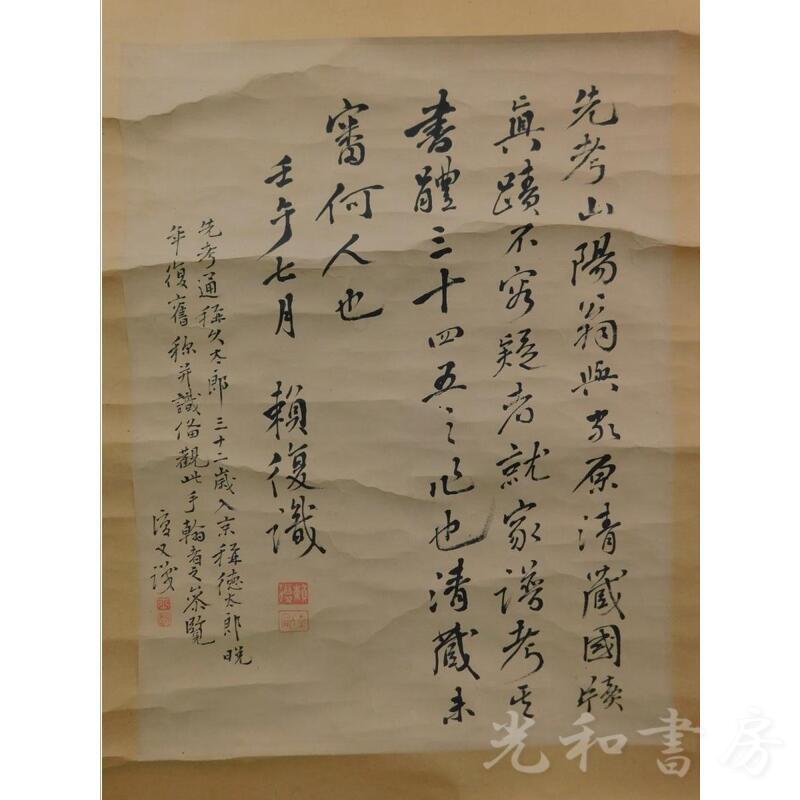 先考山陽翁與家原清蔵國牘
真蹟不容疑者就家譜考其
書體三十四五之作也清蔵未
審何人也
壬午七月　頼復識
先考通稱久太郎三十二歳入京稱徳太郎晩
年復舊称并識備観此手翰者之参覧
復又識
光和書房